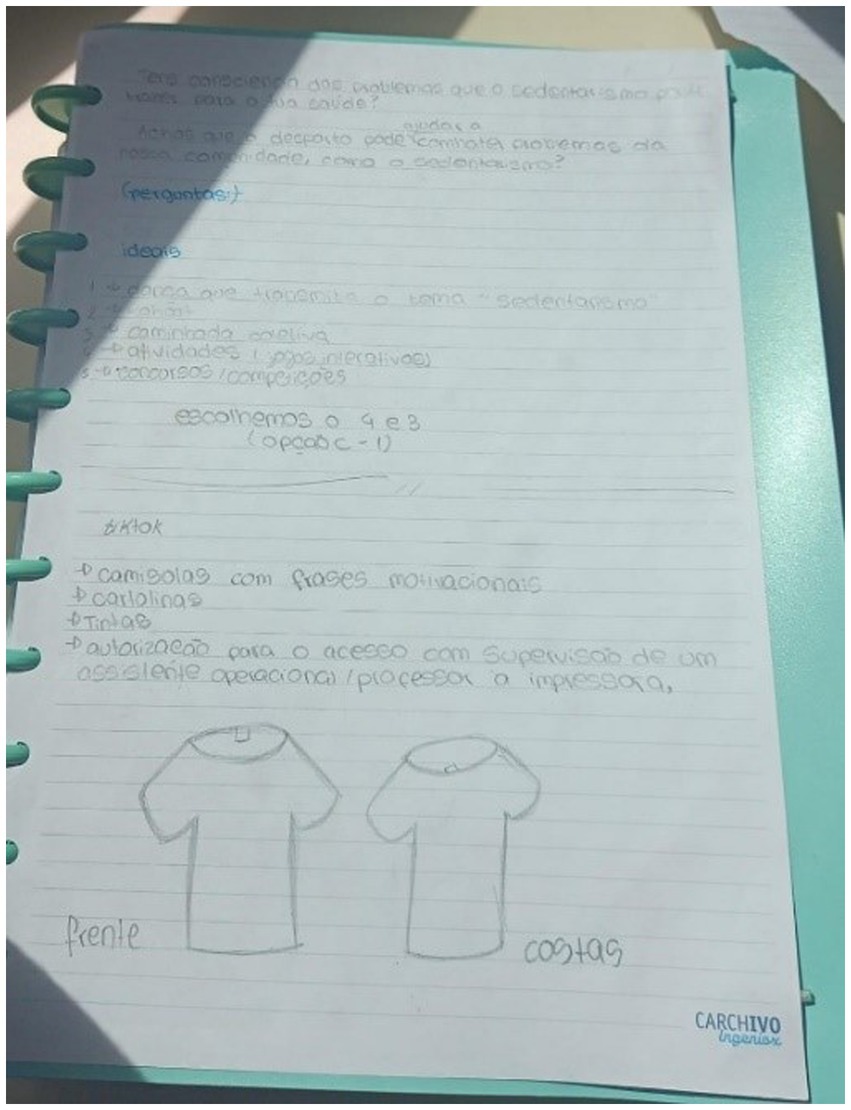 Tens consciência dos problemas que o sedentarismo pode
trazer para a tua saúde?
ajudar a
Achas que o desporto pode combater problemas da
nossa comunidade, como o sedentarismo?
(perguntas:)
ideais
1 → dança que transmita o tema "sedentarismo"
2 →
3 → caminhada coletiva
4 → atividades (jogos interativos)
5 → concursos/competições
escolhemos o 4 e 3
(opção C-1)
tiktok
→ camisolas com frases motivacionais
→ cartolinas
→ Tintas
→ autorização para o acesso com supervisão de um
assistente operacional/processor à impressora,
frente
costas
CARCHIVO
ingeniox